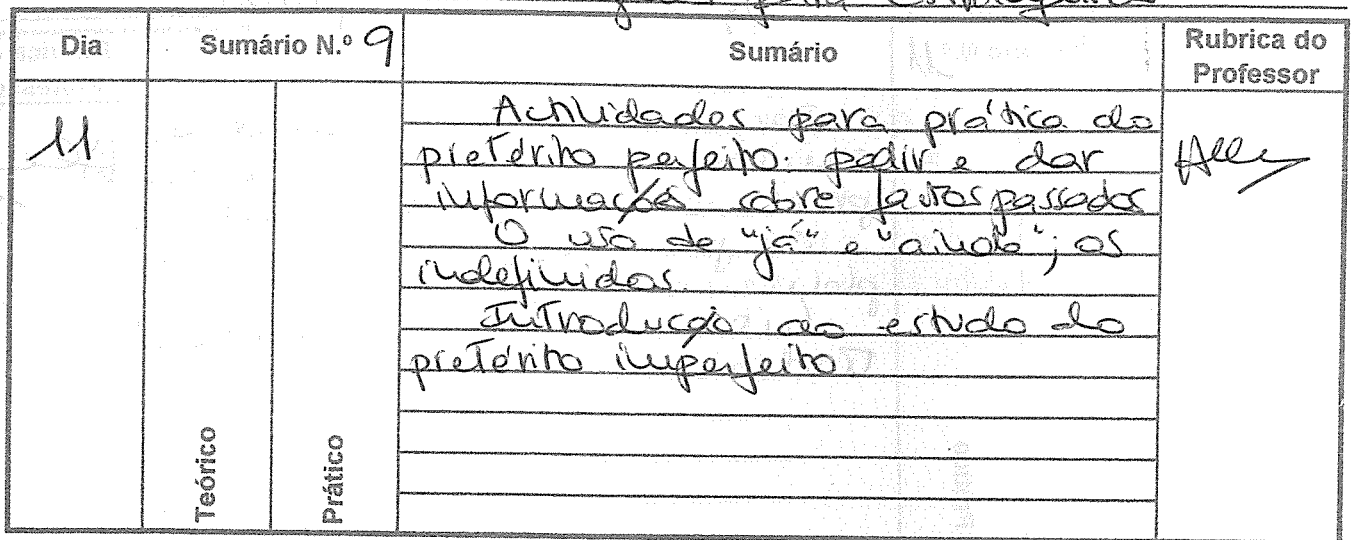 para
Dia Sumário N.º 9 Sumário Rubrica do Professor
11
Actividades para prática do
pretérito perfeito: pedir e dar
informações sobre factos passados
O uso de "já" e "ainda"; os
indefinidos.
Introdução ao estudo do
pretérito imperfeito
Teórico
Prático